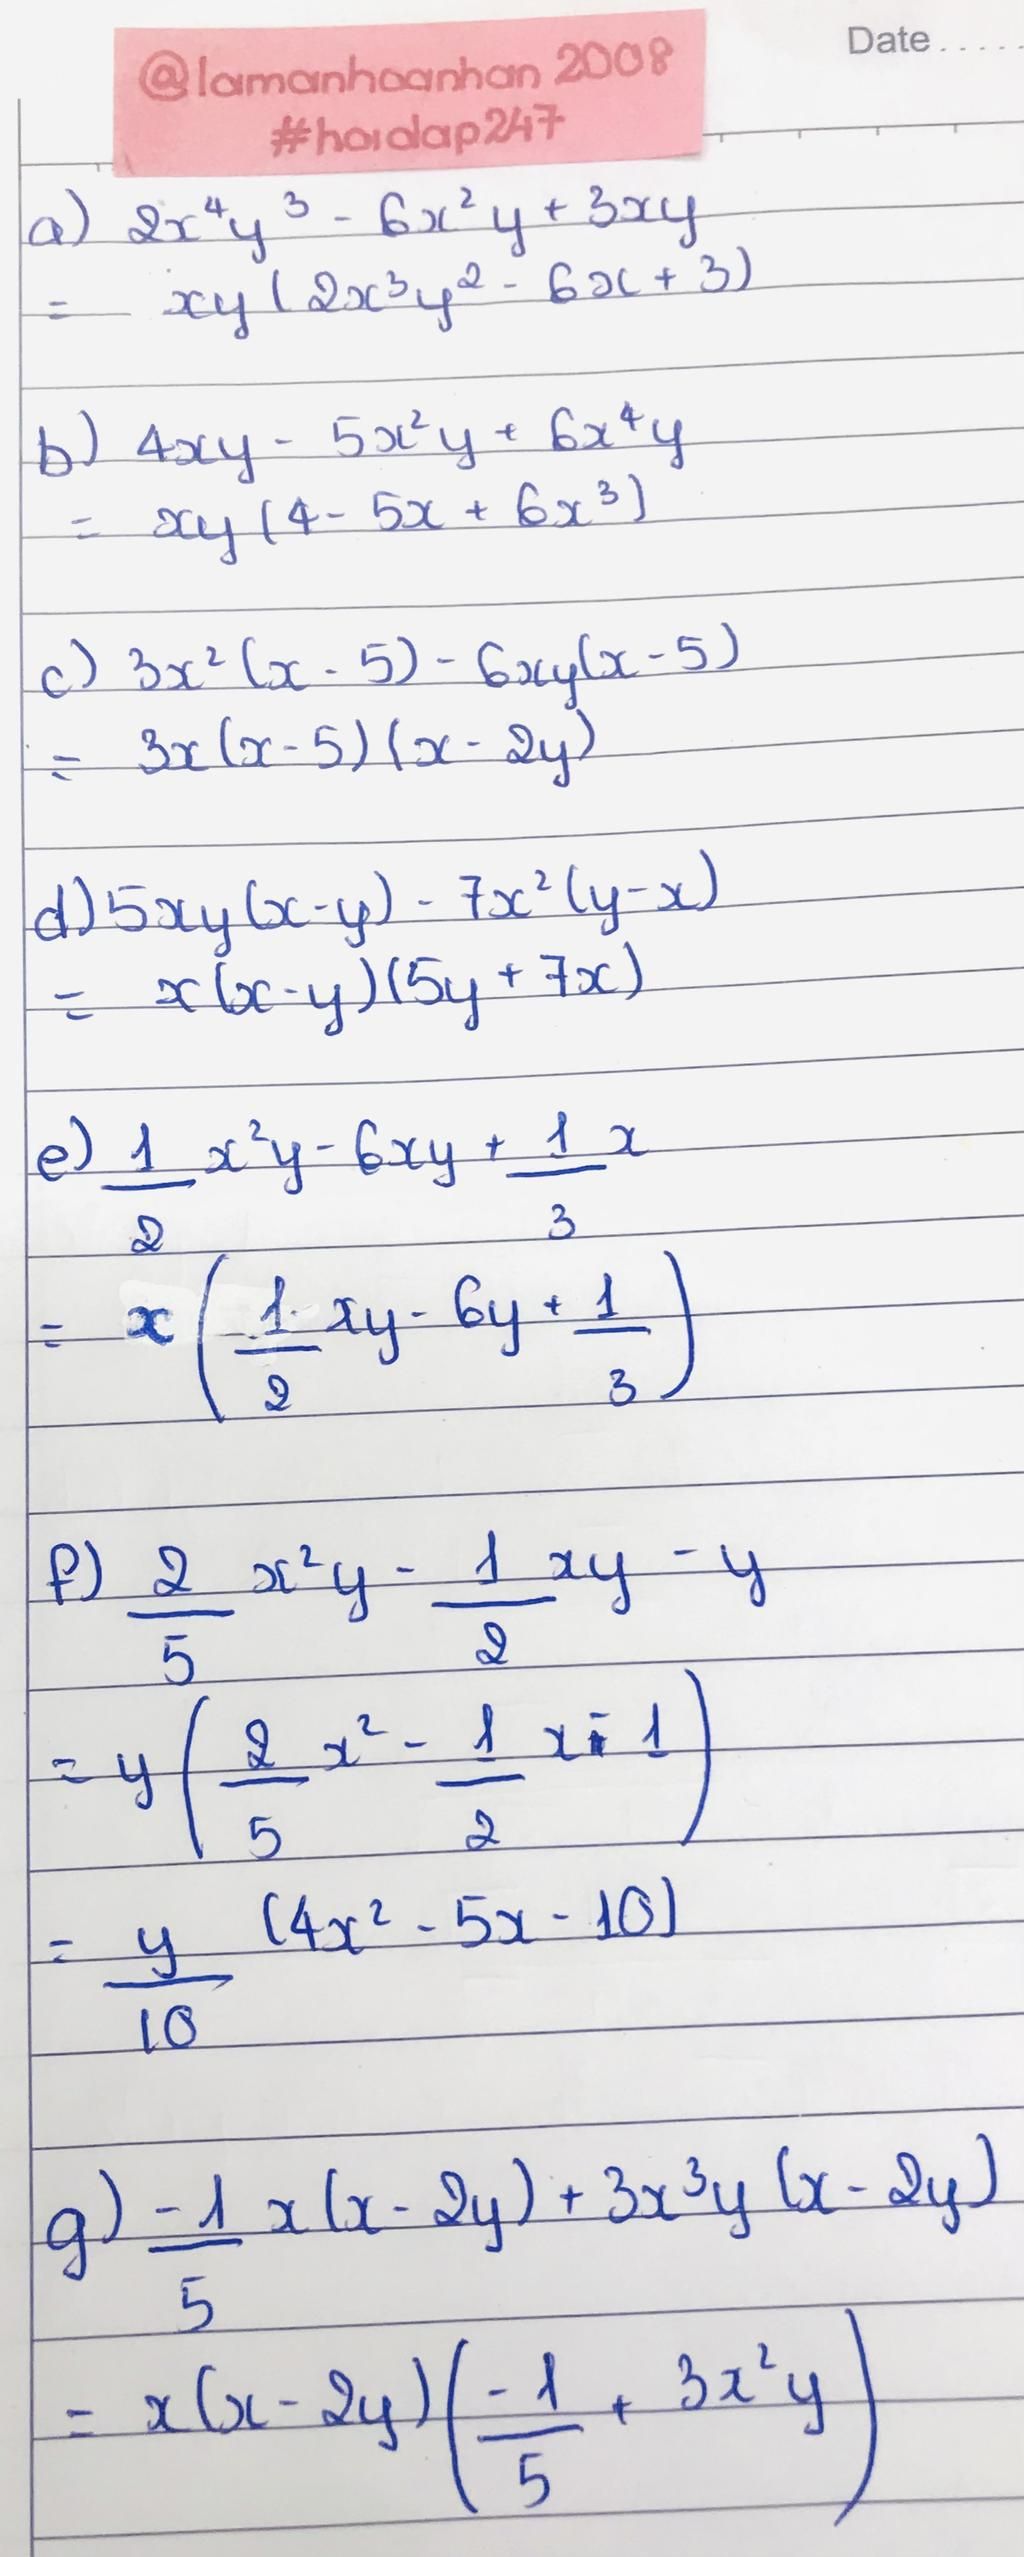 Date.....
@lamanhoanhan 2008
#hoidap247
a) 2x⁴y³ - 6x²y + 3xy
= xy(2x³y² - 6x + 3)
b) 4xy - 5x²y + 6x⁴y
= xy(4 - 5x + 6x³)
c) 3x²(x - 5) - 6xy(x - 5)
= 3x(x - 5)(x - 2y)
d) 5xy(x-y) - 7x²(y-x)
= x(x-y)(5y + 7x)
e) 1/2 x²y - 6xy + 1/3 x
= x(1/2 xy - 6y + 1/3)
f) 2/5 x²y - 1/2 xy - y
= y(2/5 x² - 1/2 x - 1)
= y/10 (4x² - 5x - 10)
g) -1/5 x(x - 2y) + 3x³y(x - 2y)
= x(x - 2y)(-1/5 + 3x²y)